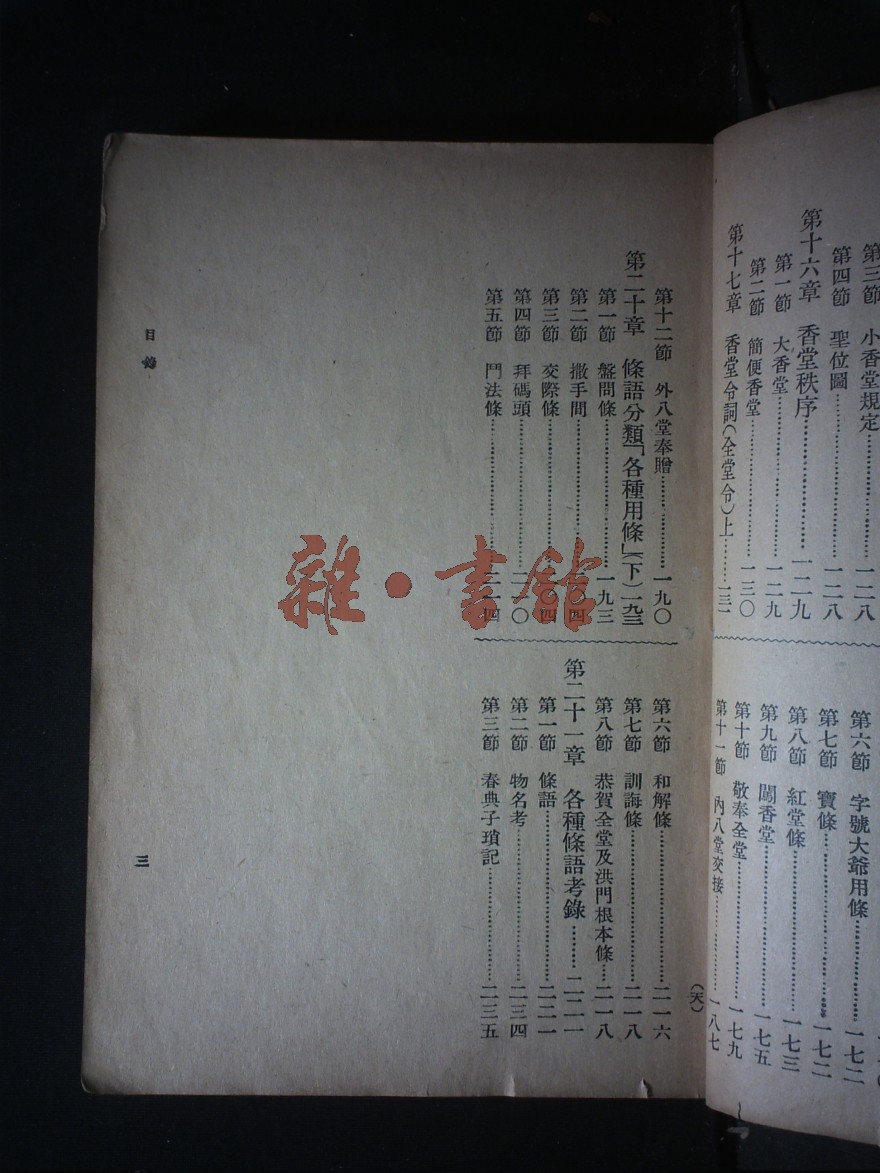 第三節　小香堂規定……一二八
第四節　聖位圖……一二八
第十六章　香堂秩序……一二九
第一節　大香堂……一二九
第二節　簡便香堂……一三〇
第十七章　香堂令詞(全堂令)上……一三一
第六節　字號大爺用條……一七二
第七節　寶條……一七二
第八節　紅堂條……一七三
第九節　闖香堂……一七五
第十節　敬奉全堂……一七九
第十一節　內八堂交接……一八七
第十二節　外八堂奉贈……一九〇
第二十章　條語分類「各種用條」(下)一九三
第一節　盤問條……一九三
第二節　撒手間……二〇四
第三節　交際條……二〇四
第四節　拜碼頭……二一〇
第五節　鬥法條……二一四
(天)
第六節　和解條……二一六
第七節　訓誨條……二一八
第八節　恭賀全堂及洪門根本條…二一八
第二十一章　各種條語考錄……二二一
第一節　條語……二二一
第二節　物名考……二三四
第三節　春典子瑣記……二三五
目錄
三
雜·書館